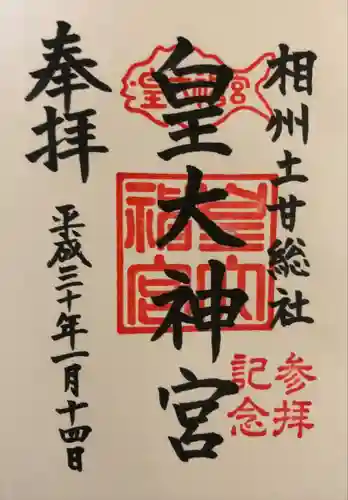 相州土甘総社
参拝
記念
皇大神宮
皇大神宮
奉拝
平成三十年一月十四日